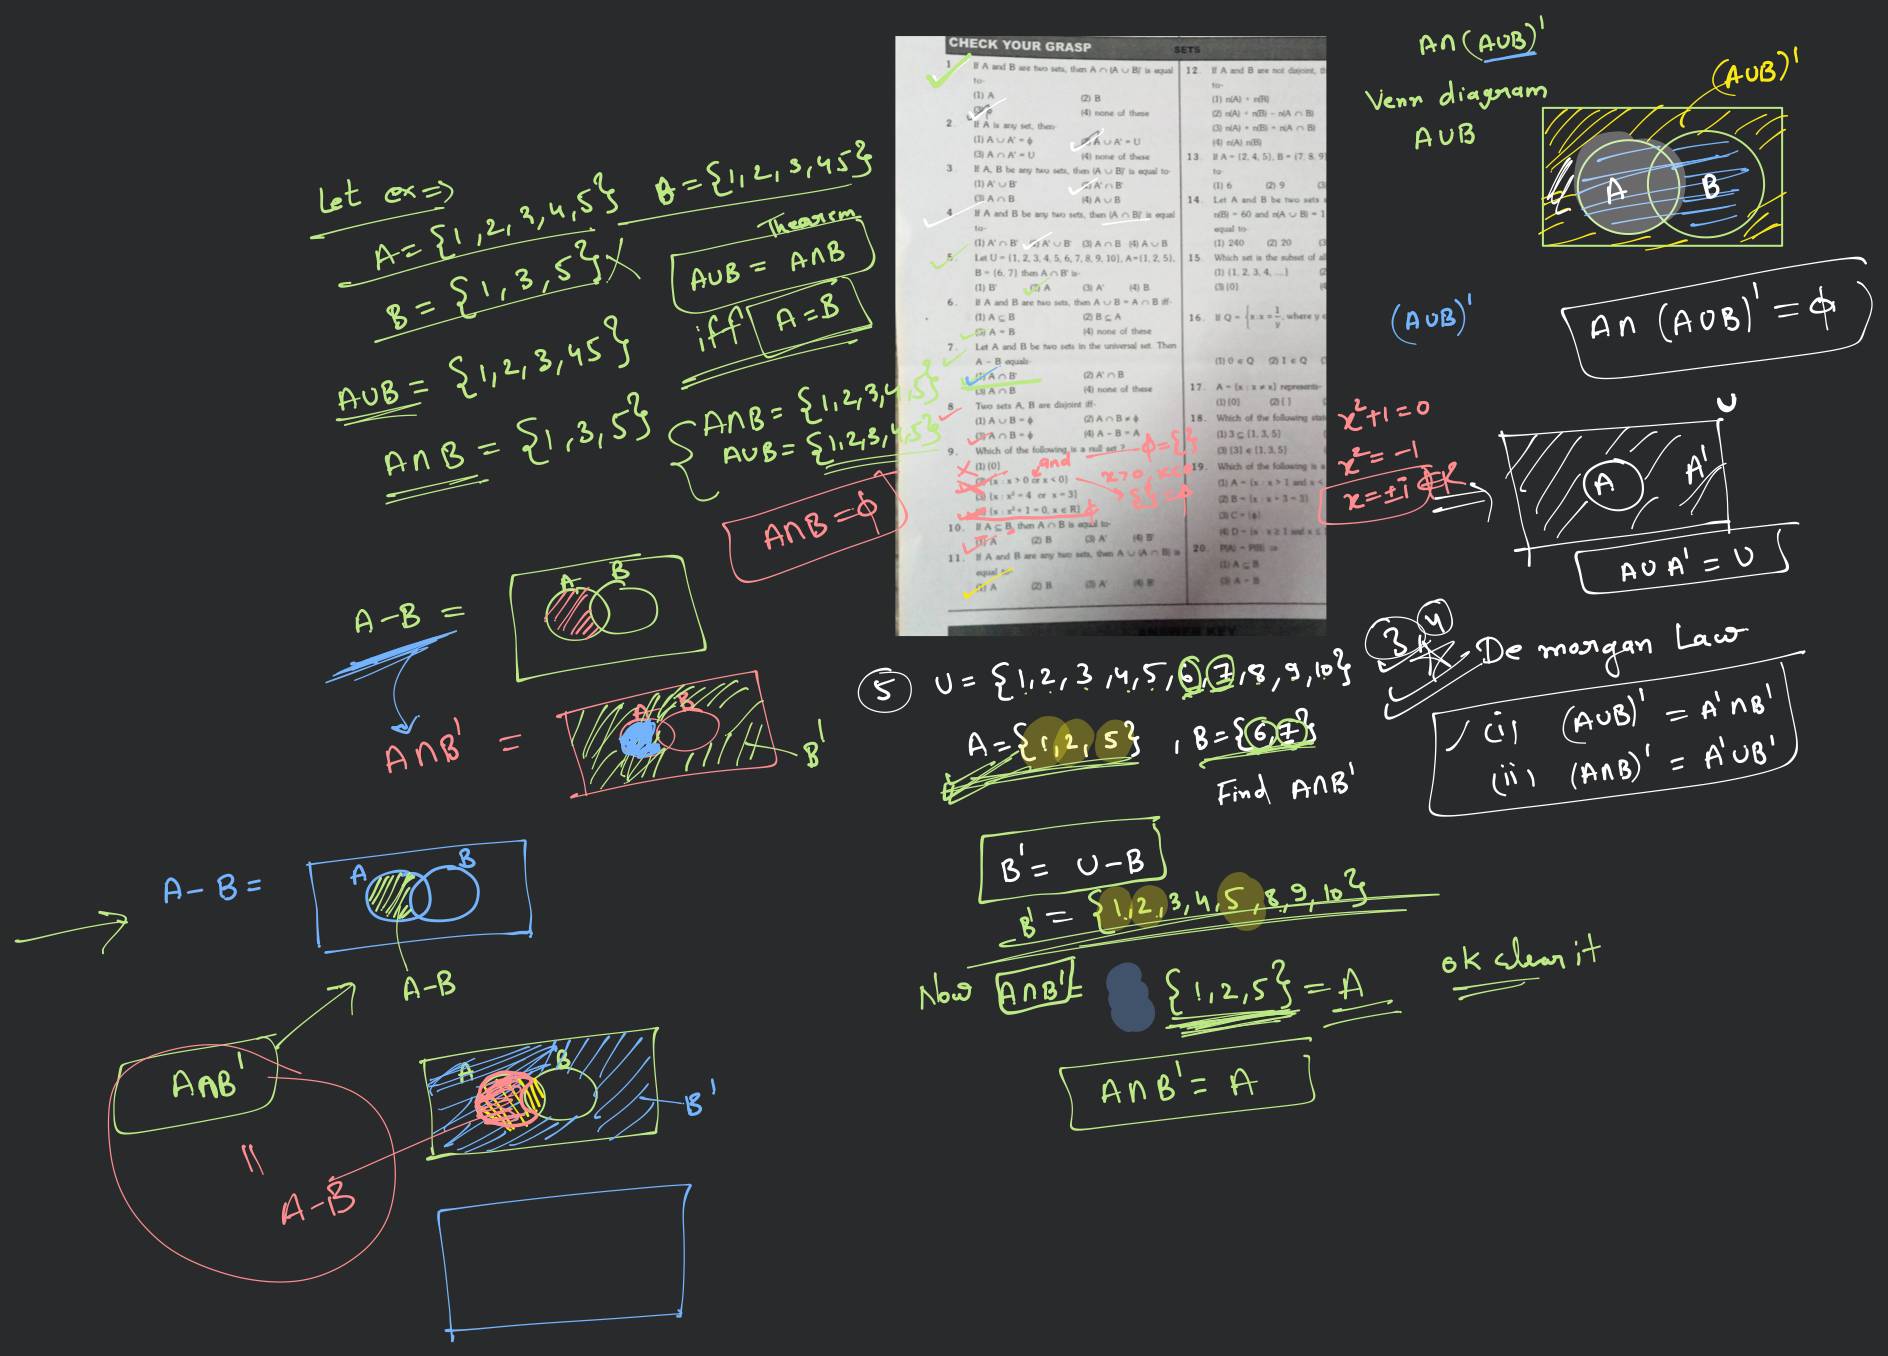 Let ex =>
A = {1,2,3,4,5} B = {1,2,3,45}
B = {1,3,5} X
AUB = {1,2,3,45}
A∩B = {1,3,5}
Theorem
AUB = A∩B
iff A=B
A∩B = {1,2,3,4,5}
AUB = {1,2,3,4,5}
A∩B = ϕ
A-B =
A B
A∩B' =
A B
B'
A-B =
A B
A-B
A∩B'
||
A-B
A B
B'
CHECK YOUR GRASP SETS
1. If A and B are two sets, then A ∩ (A ∪ B)' is equal
to-
(1) A (2) B
(3) ϕ (4) none of these
2. If A is any set, then-
(1) A ∪ A' = ϕ (2) A ∪ A' = U
(3) A ∩ A' = U (4) none of these
3. If A, B be any two sets, then (A ∪ B)' is equal to-
(1) A' ∪ B' (2) A' ∩ B'
(3) A ∩ B (4) A ∪ B
4. If A and B be any two sets, then (A ∩ B)' is equal
to-
(1) A' ∩ B' (2) A' ∪ B' (3) A ∩ B (4) A ∪ B
5. Let U = {1, 2, 3, 4, 5, 6, 7, 8, 9, 10}, A = {1, 2, 5},
B = {6, 7} then A ∩ B' is-
(1) B' (2) A (3) A' (4) B
6. If A and B are two sets, then A ∪ B = A ∩ B iff-
(1) A ⊆ B (2) B ⊆ A
(3) A = B (4) none of these
7. Let A and B be two sets in the universal set. Then
A - B equals-
(1) A ∩ B' (2) A' ∩ B
(3) A ∩ B (4) none of these
8. Two sets A, B are disjoint iff-
(1) A ∪ B = ϕ (2) A ∩ B ≠ ϕ
(3) A ∩ B = ϕ (4) A - B = A
9. Which of the following is a null set ? ϕ = { }
(1) {0} and
(2) {x : x > 0 or x < 0} x>0, x<0
(3) {x : x² = 4 or x = 3} { } = ϕ
(4) {x : x² + 1 = 0, x ∈ R} ϕ
10. If A ⊆ B, then A ∩ B is equal to-
(1) A (2) B (3) A' (4) B'
11. If A and B are any two sets, then A ∪ (A ∩ B) is
equal to-
(1) A (2) B (3) A' (4) B'
12. If A and B are not disjoint,
to-
(1) n(A) + n(B)
(2) n(A) + n(B) - n(A ∩ B)
(3) n(A) + n(B) + n(A ∩ B)
(4) n(A) n(B)
13. If A = {2, 4, 5}, B = {7, 8, 9}
to-
(1) 6 (2) 9
14. Let A and B be two sets
n(B) = 60 and n(A ∪ B) = 1
equal to-
(1) 240 (2) 20
15. Which set is the subset of al
(1) {1, 2, 3, 4, ...}
(3) {0}
16. If Q = {x : x = 1/y, where y
(1) 0 ∈ Q (2) 1 ∈ Q
17. A = {x : x ≠ x} represents-
(1) {0} (2) { }
18. Which of the following
(1) 3 ⊆ {1, 3, 5}
(3) {3} ∈ {1, 3, 5}
19. Which of the following is a
(1) A = {x : x > 1 and x <
(2) B = {x : x + 3 = 3}
(3) C = {ϕ}
(4) D = {x : x ≥ 1 and x ≤
20. P(A) = P(B) ⇒
(1) A ⊆ B
(3) A = B
ANSWER KEY
A∩(AUB)'
Venn diagram
AUB
(AUB)'
A B
(AUB)'
A∩(AUB)' = ϕ
x²+1=0
x² = -1
x = ±i ∉ R
U
A A'
AUA' = U
3 4 De morgan Law
(i) (AUB)' = A'∩B'
(ii) (A∩B)' = A'UB'
5 U = {1,2,3,4,5,6,7,8,9,10}
A = {1,2,5} , B = {6,7}
Find A∩B'
B' = U-B
B' = {1,2,3,4,5,8,9,10}
Now A∩B' = {1,2,5} = A
ok clear it
A∩B' = A